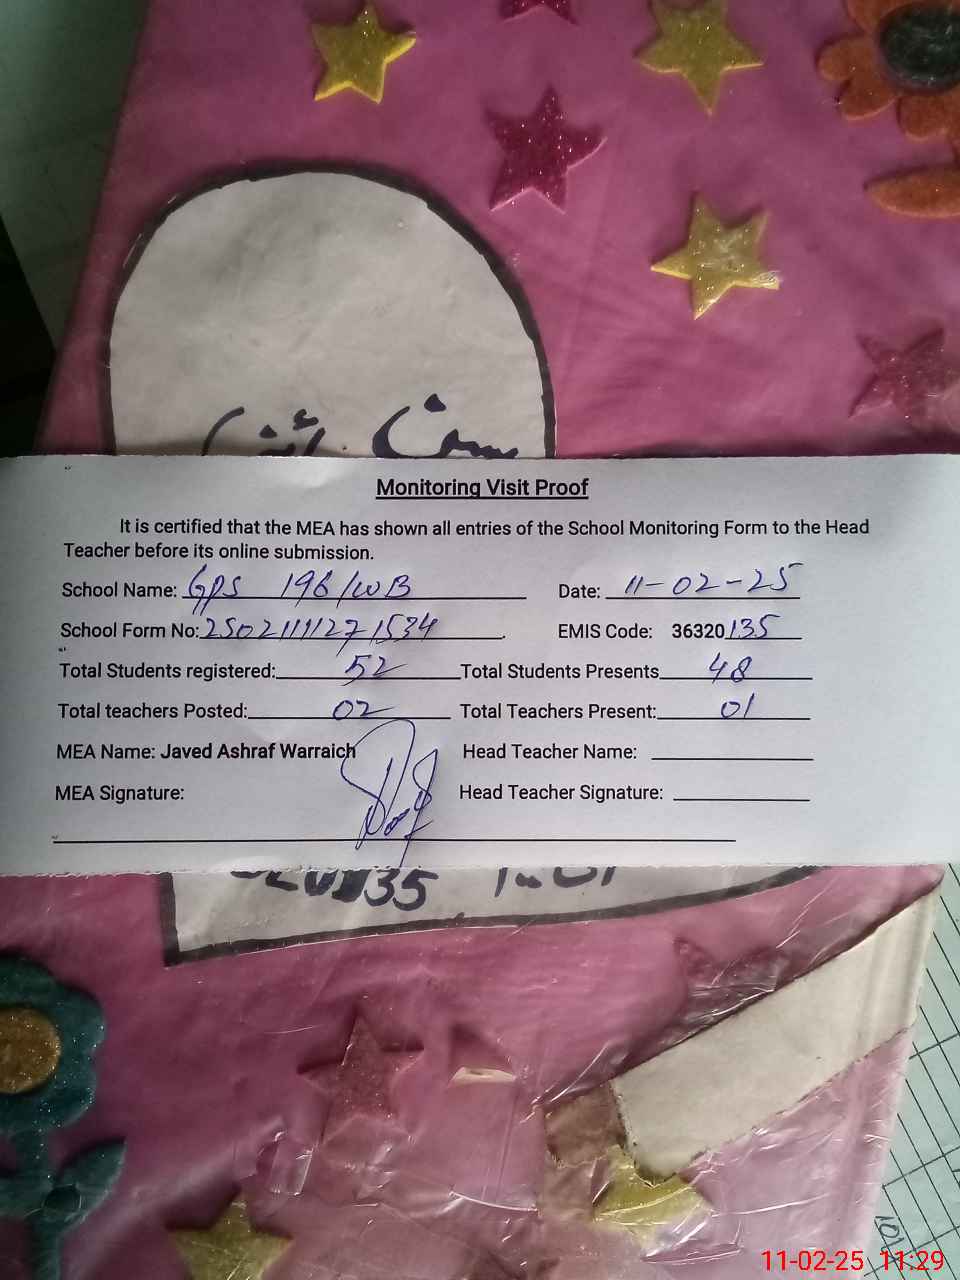 Monitoring Visit Proof
It is certified that the MEA has shown all entries of the School Monitoring Form to the Head
Teacher before its online submission.
School Name: GPS 196/WB Date: 11-02-25
School Form No: 25021111271534 EMIS Code: 36320135
Total Students registered: 52 Total Students Presents 48
Total teachers Posted: 02 Total Teachers Present: 01
MEA Name: Javed Ashraf Warraich Head Teacher Name:
MEA Signature: Head Teacher Signature:
11-02-25 11:29